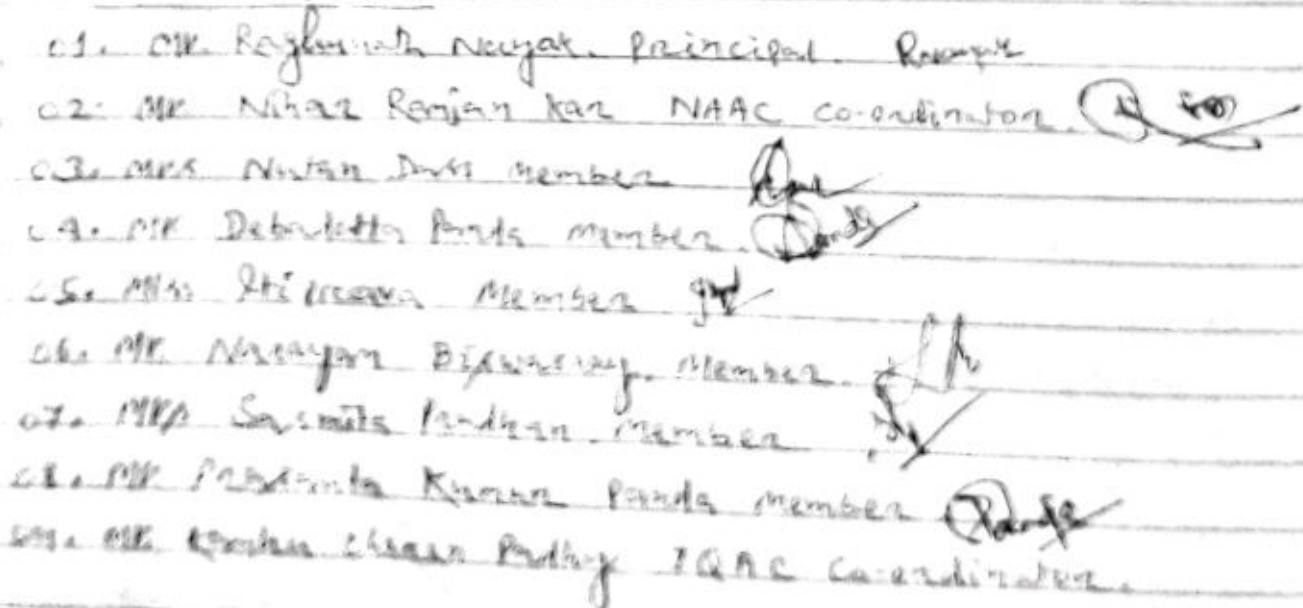 01. Mr. Raghunath Nayak. Principal.
02. Mr Nihar Ranjan Kar NAAC Co-ordinator.
03. Mrs Nutan Dass Member
04. Mr Debadatta Panda Member. Panda
05. Miss Iti Member
06. Mr. Narayan Biswasray. Member.
07. Mrs Sasmita Pradhan. Member
08. Mr Prasanta Kumar Panda Member Panda
09. Mr. Charan Padhy IQAC Co-ordinator.